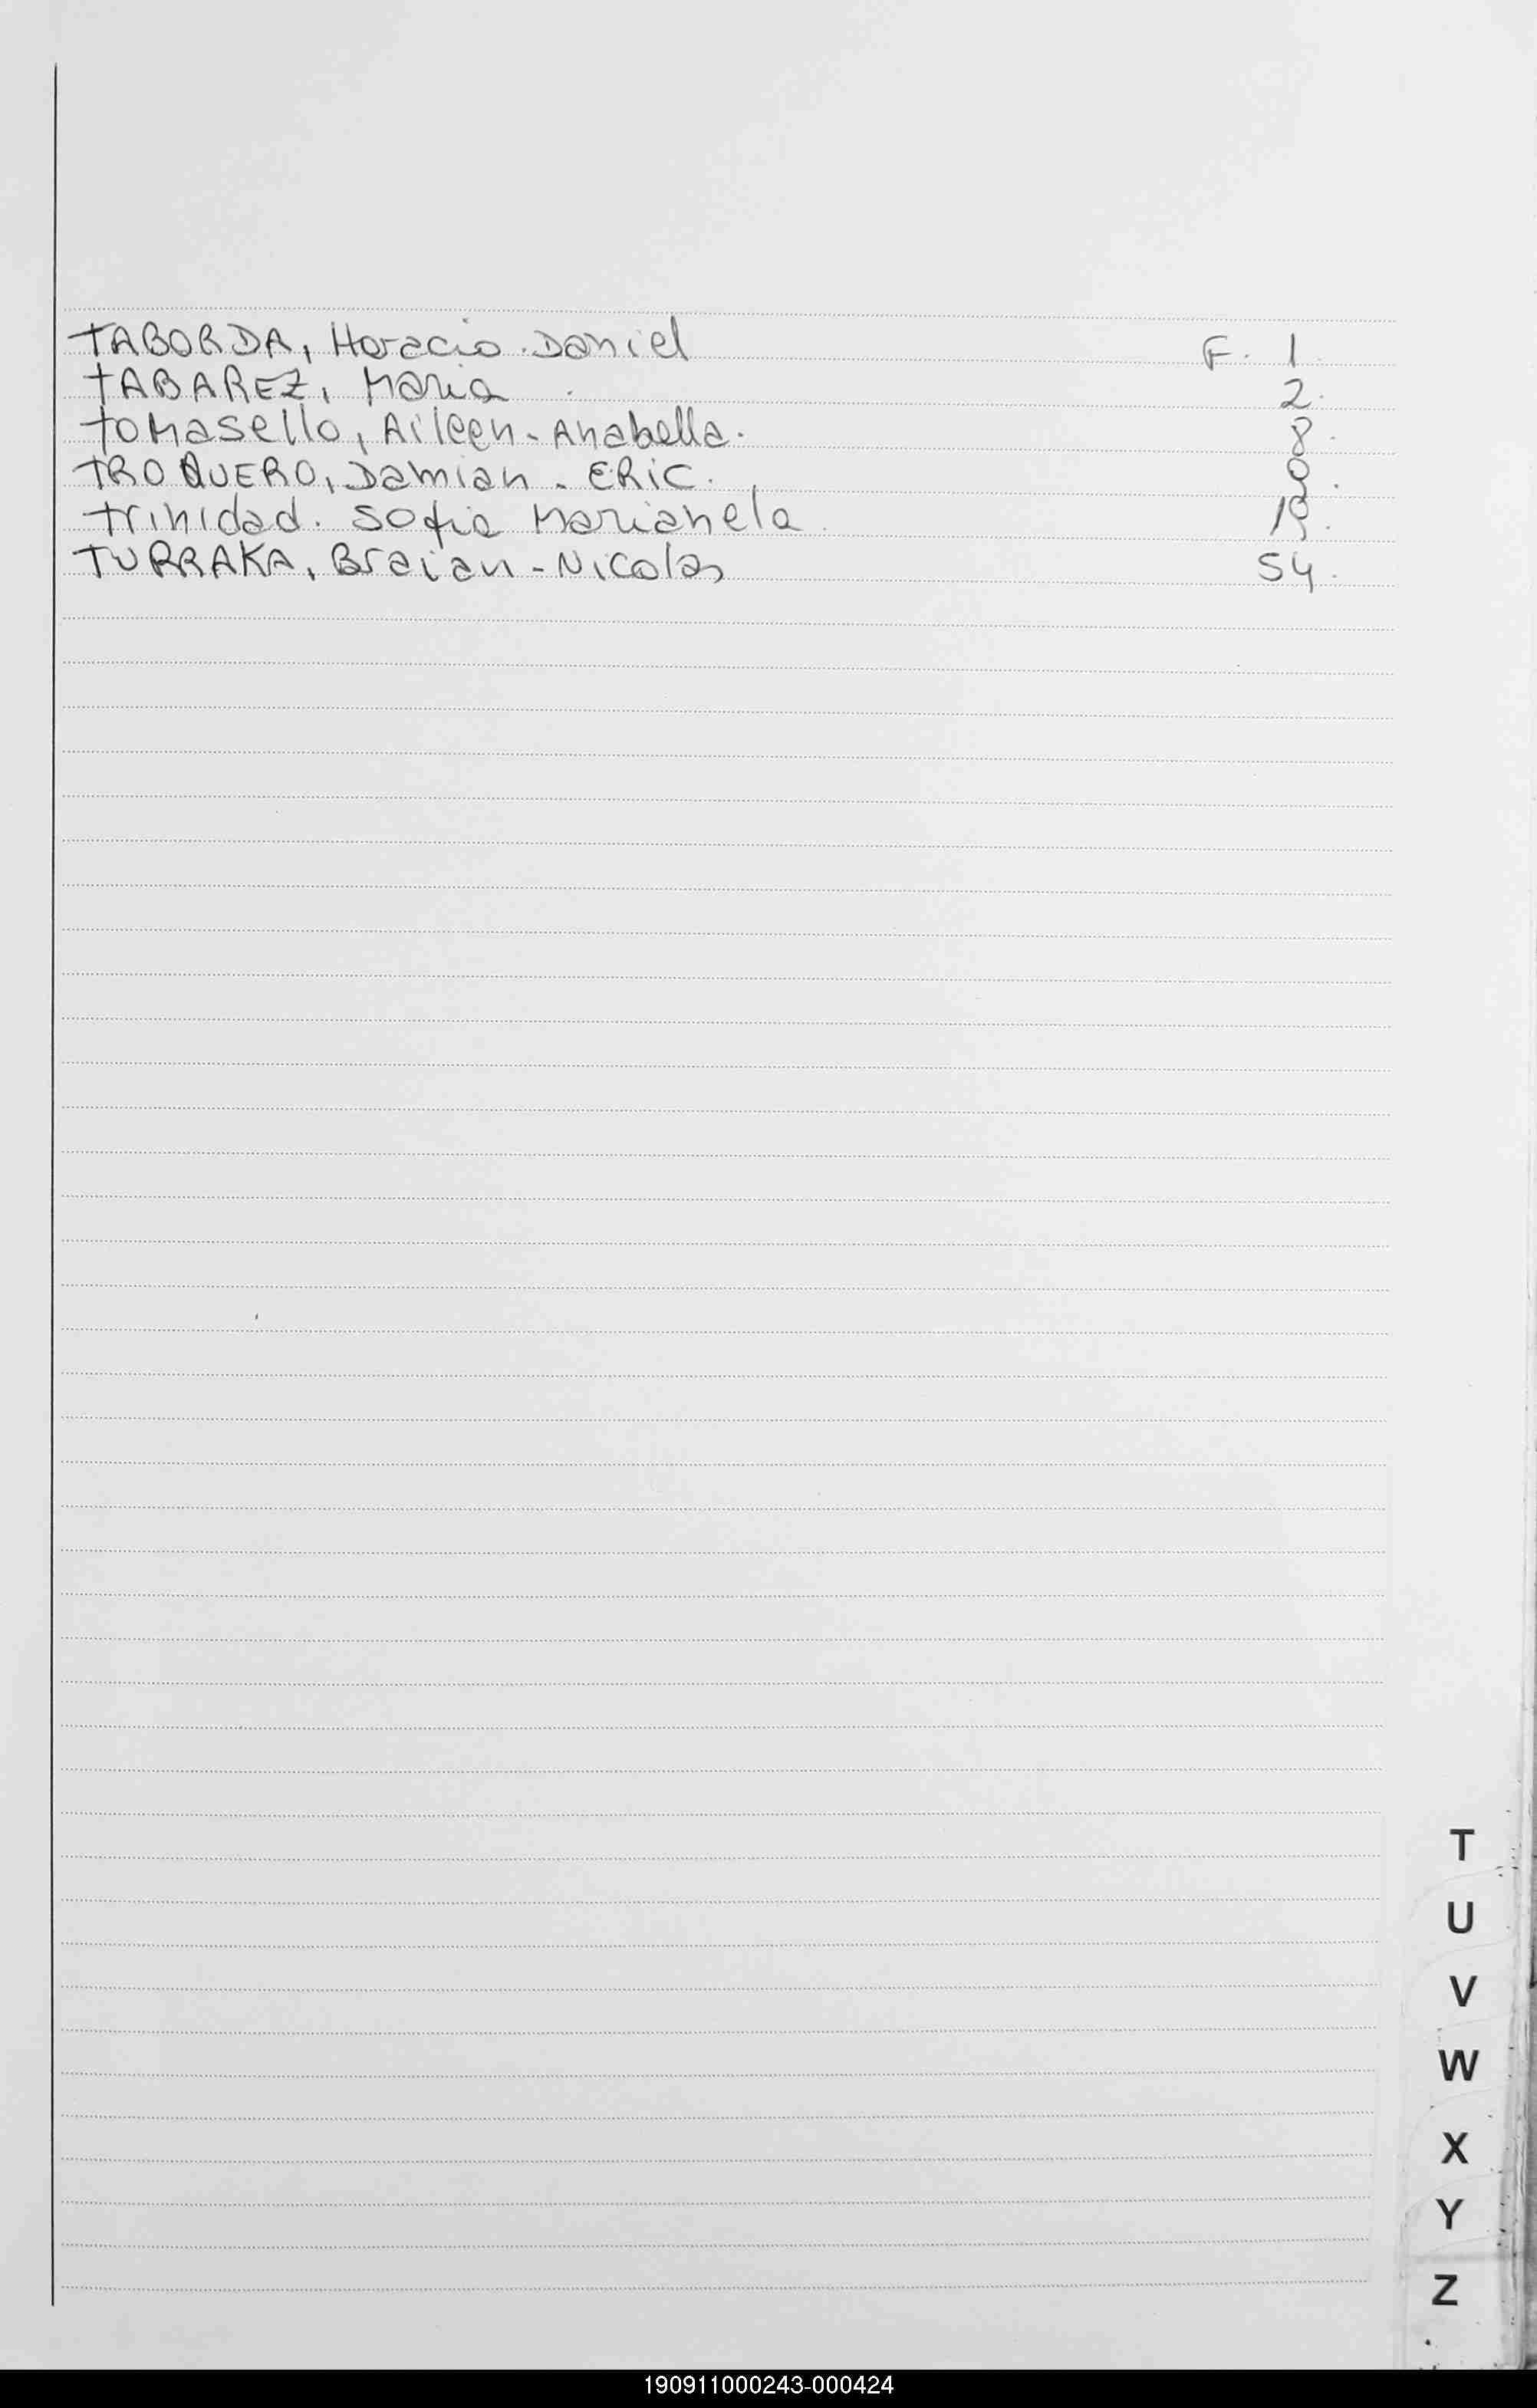 TABORDA, Horacio. Daniel F. 1.
TABAREZ, Maria. 2.
toMasello, Aileen. Anabella. 8.
TROQUERO, Damian. ERiC.
trinidad. Sofia Marianela.
TURRAKA, Braian - Nicolas 54.
T
U
V
W
X
Y
Z
190911000243-000424